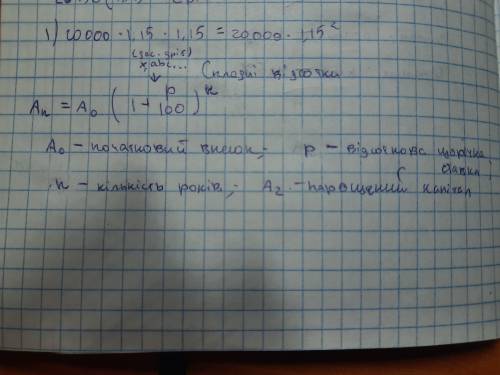 1) 20000 · 1,15 · 1,15 = 20000 · 1,15²
(дес. дріб)
x,abc...
Складні відсотки
Aₙ = A₀ (1 + p/100)ⁿ
A₀ – початковий внесок; p – відсоткова щорічна
ставка;
n – кількість років; A₂ – нарощений капітал